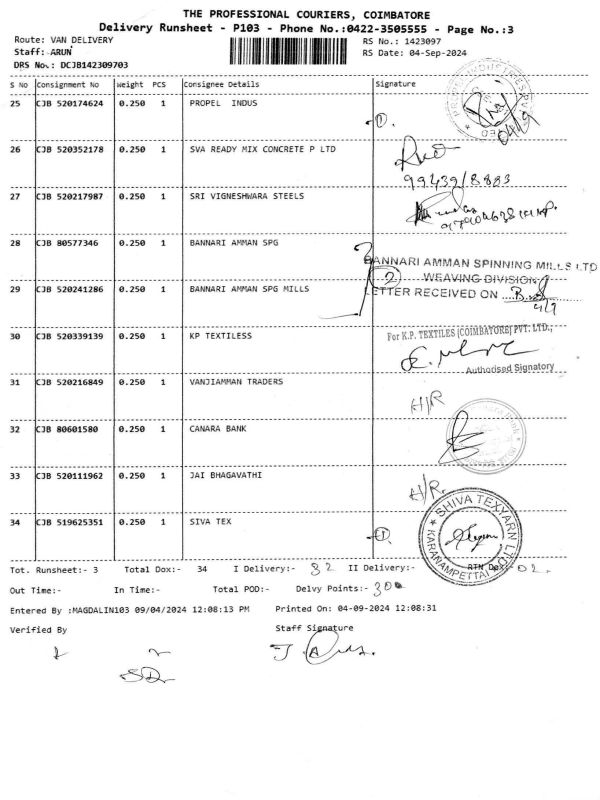 THE PROFESSIONAL COURIERS, COIMBATORE
Delivery Runsheet - P103 - Phone No.:0422-3505555 - Page No.:3
Route: VAN DELIVERY RS No.: 1423097
Staff: ARUN RS Date: 04-Sep-2024
DRS No.: DCJB142309703
S No Consignment No Weight PCS Consignee Details Signature
25 CJB 520174624 0.250 1 PROPEL INDUS
26 CJB 520352178 0.250 1 SVA READY MIX CONCRETE P LTD
99439/8883
27 CJB 520217987 0.250 1 SRI VIGNESHWARA STEELS
28 CJB 80577346 0.250 1 BANNARI AMMAN SPG
BANNARI AMMAN SPINNING MILLS LTD
2 WEAVING DIVISION
29 CJB 520241286 0.250 1 BANNARI AMMAN SPG MILLS LETTER RECEIVED ON
4/9
30 CJB 520339139 0.250 1 KP TEXTILESS For K.P. TEXTILES (COIMBATORE) PVT. LTD.,
Authorised Signatory
31 CJB 520216849 0.250 1 VANJIAMMAN TRADERS H/R
32 CJB 80601580 0.250 1 CANARA BANK
33 CJB 520111962 0.250 1 JAI BHAGAVATHI H/R.
34 CJB 519625351 0.250 1 SIVA TEX 1 SHIVA TEXYARN LTD KARANAMPETTAI
Tot. Runsheet:- 3 Total Dox:- 34 I Delivery:- 32 II Delivery:- RTN Dox:- 02.
Out Time:- In Time:- Total POD:- Delvy Points:- 30
Entered By :MAGDALIN103 09/04/2024 12:08:13 PM Printed On: 04-09-2024 12:08:31
Verified By Staff Signature